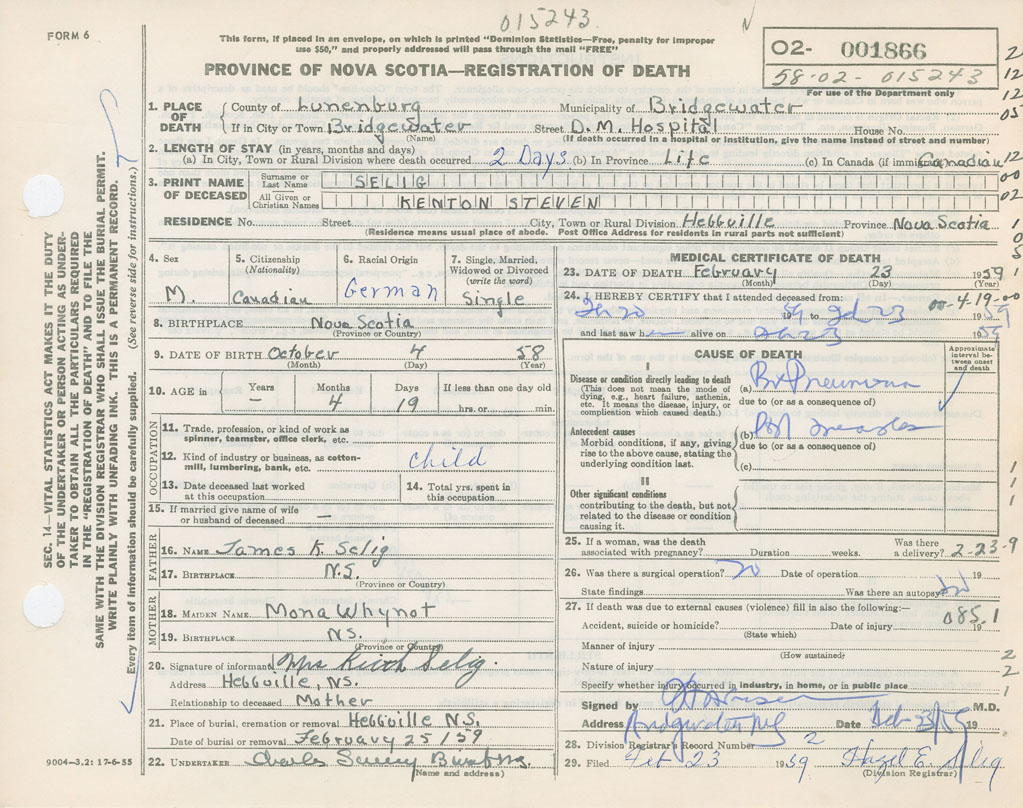 015243
FORM 6
This form, if placed in an envelope, on which is printed "Dominion Statistics—Free, penalty for improper
use $50," and properly addressed will pass through the mail "FREE"
PROVINCE OF NOVA SCOTIA—REGISTRATION OF DEATH
02- 001866
58-02-015243
For use of the Department only
2
12
12
05
12
00
02
1
0
5
1
SEC. 14—VITAL STATISTICS ACT MAKES IT THE DUTY
OF THE UNDERTAKER OR PERSON ACTING AS UNDER-
TAKER TO OBTAIN ALL THE PARTICULARS REQUIRED
IN THE "REGISTRATION OF DEATH" AND TO FILE THE
SAME WITH THE DIVISION REGISTRAR WHO SHALL ISSUE THE BURIAL PERMIT.
WRITE PLAINLY WITH UNFADING INK. THIS IS A PERMANENT RECORD.
Every item of information should be carefully supplied. (See reverse side for instructions.)
1. PLACE OF DEATH
County of Lunenburg Municipality of Bridgewater
If in City or Town Bridgewater Street D.M. Hospital House No.
(Name) (If death occurred in a hospital or institution, give the name instead of street and number)
2. LENGTH OF STAY (in years, months and days)
(a) In City, Town or Rural Division where death occurred 2 Days (b) In Province Life (c) In Canada (if immigrant) Canadian
3. PRINT NAME OF DECEASED
Surname or Last Name SELIG
All Given or Christian Names KENTON STEVEN
RESIDENCE No. Street City, Town or Rural Division Hebbville Province Nova Scotia
(Residence means usual place of abode. Post Office Address for residents in rural parts not sufficient)
4. Sex M.
5. Citizenship (Nationality) Canadian
6. Racial Origin German
7. Single, Married, Widowed or Divorced (write the word) Single
8. BIRTHPLACE Nova Scotia
(Province or Country)
9. DATE OF BIRTH October 4 58
(Month) (Day) (Year)
10. AGE in Years — Months 4 Days 19 If less than one day old hrs. or min.
OCCUPATION
11. Trade, profession, or kind of work as
spinner, teamster, office clerk, etc.
12. Kind of industry or business, as cotton-
mill, lumbering, bank, etc. child
13. Date deceased last worked
at this occupation
14. Total yrs. spent in
this occupation
15. If married give name of wife
or husband of deceased —
FATHER
16. NAME James K. Selig
17. BIRTHPLACE N.S.
(Province or Country)
MOTHER
18. MAIDEN NAME Mona Whynot
19. BIRTHPLACE NS.
(Province or Country)
20. Signature of informant Mrs Keith Selig.
Address Hebbville, NS.
Relationship to deceased Mother
21. Place of burial, cremation or removal Hebbville N.S.
Date of burial or removal February 25/59
22. UNDERTAKER Charles
(Name and address)
9004—3.2: 17-6-55
MEDICAL CERTIFICATE OF DEATH
23. DATE OF DEATH February 23 1959
(Month) (Day) (Year)
00-4-19-00
24. I HEREBY CERTIFY that I attended deceased from:
59 to Feb 23 1959
and last saw h alive on 1959
CAUSE OF DEATH
Approximate
interval be-
tween onset
and death
I
Disease or condition directly leading to death
(This does not mean the mode of
dying, e.g., heart failure, asthenia,
etc. It means the disease, injury, or
complication which caused death.)
(a) Br Pneumonia
due to (or as a consequence of)
Antecedent causes
Morbid conditions, if any, giving
rise to the above cause, stating the
underlying condition last.
(b) measles
due to (or as a consequence of)
(c)
II
Other significant conditions
contributing to the death, but not
related to the disease or condition
causing it.
1
1
1
25. If a woman, was the death
associated with pregnancy? Duration weeks. Was there
a delivery? 2-23-9
26. Was there a surgical operation? No Date of operation 19
State findings Was there an autopsy No
27. If death was due to external causes (violence) fill in also the following:—
085.1
Accident, suicide or homicide? Date of injury 19
(State which)
Manner of injury 2
(How sustained)
Nature of injury 2
Specify whether injury occurred in industry, in home, or in public place 1
Signed by M.D.
Address Bridgewater NS Date Feb 23/59
28. Division Registrar's Record Number 2
29. Filed Feb 23 1959 Hazel E. Selig
(Division Registrar)